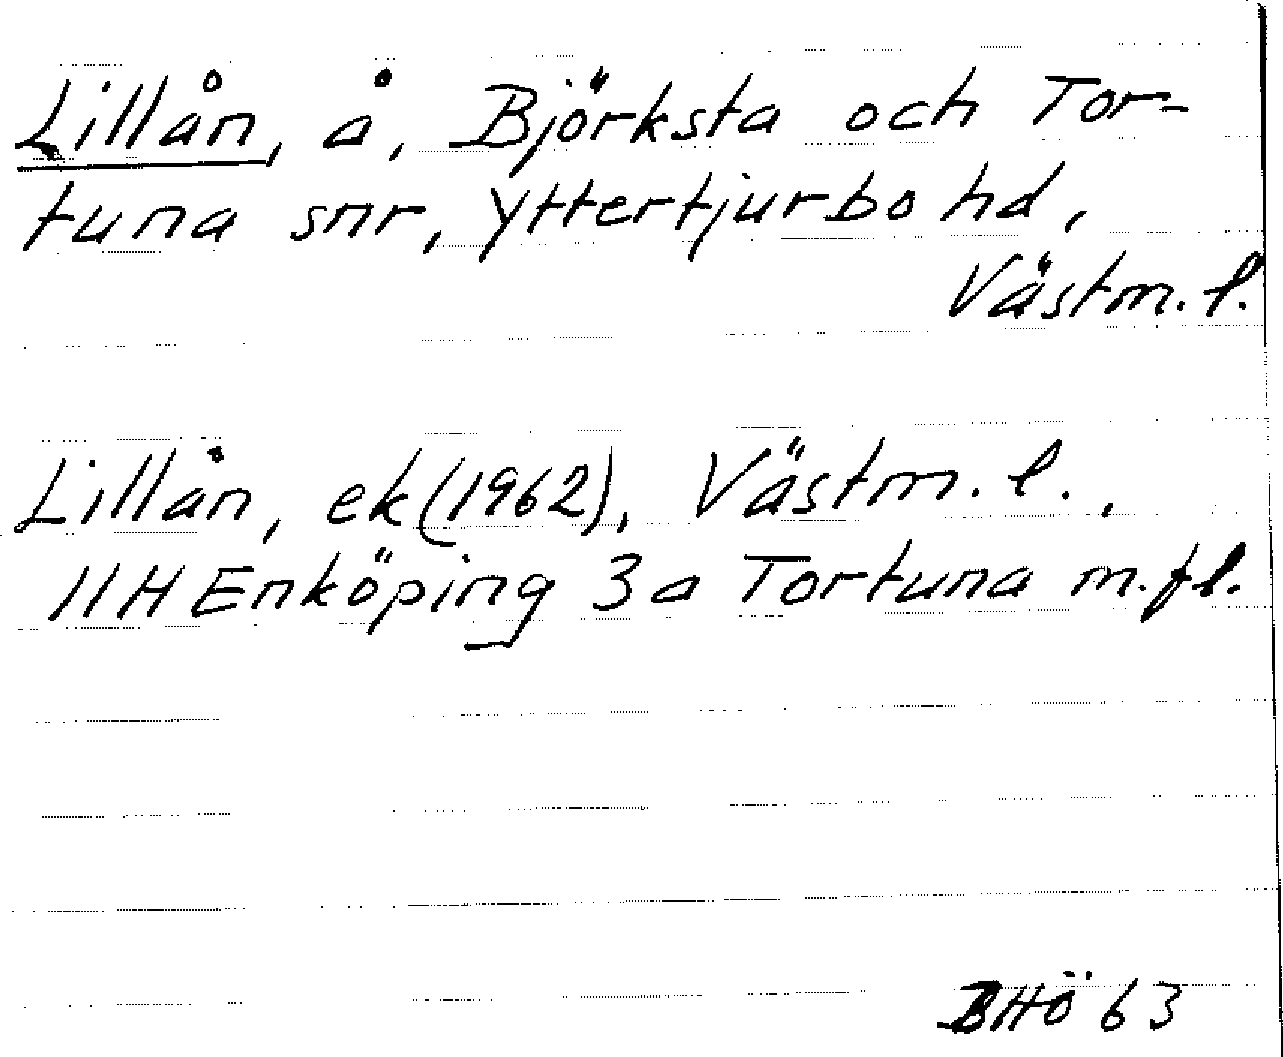 Lillån, å, Björksta och Tor-
tuna snr, Yttertjurbo hd,
Västm. l.
Lillån, ek (1962), Västm. l.,
11H Enköping 3a Tortuna m.fl.
BHÖ 63